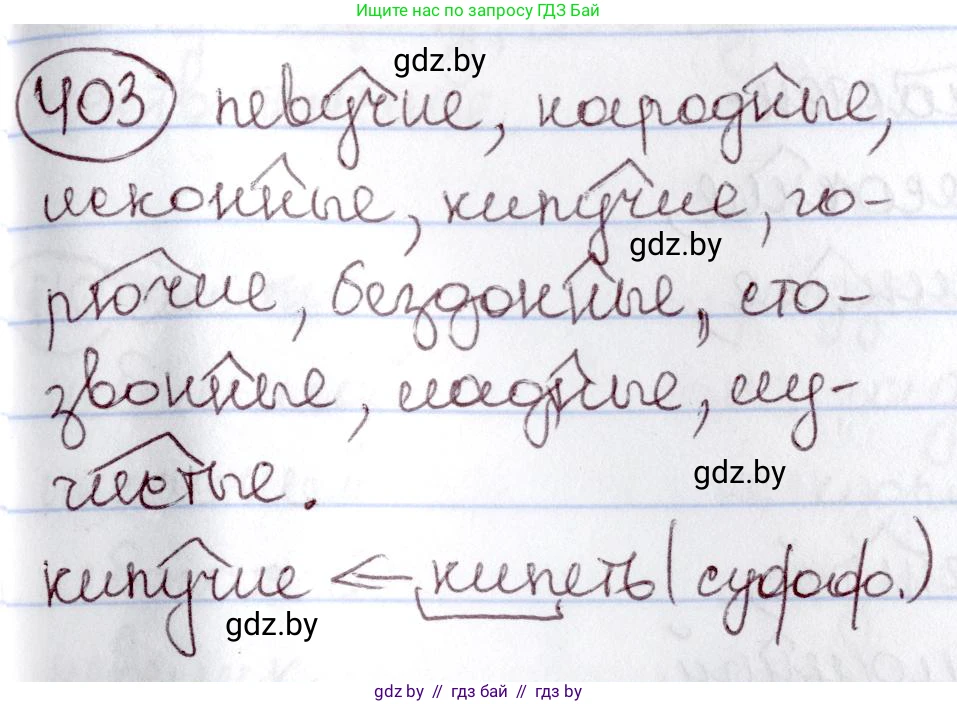 Ищите нас по запросу ГДЗ Бай
gdz.by
403 певучие, народные,
исконные, кипучие, го-
gdz.by
рючие, бездонные, сто-
звонные, ладные, лу-
gdz.by
чистые.
кипучие ← кипеть (суффф.)
gdz.by
gdz.by // гдз бай // гдз by